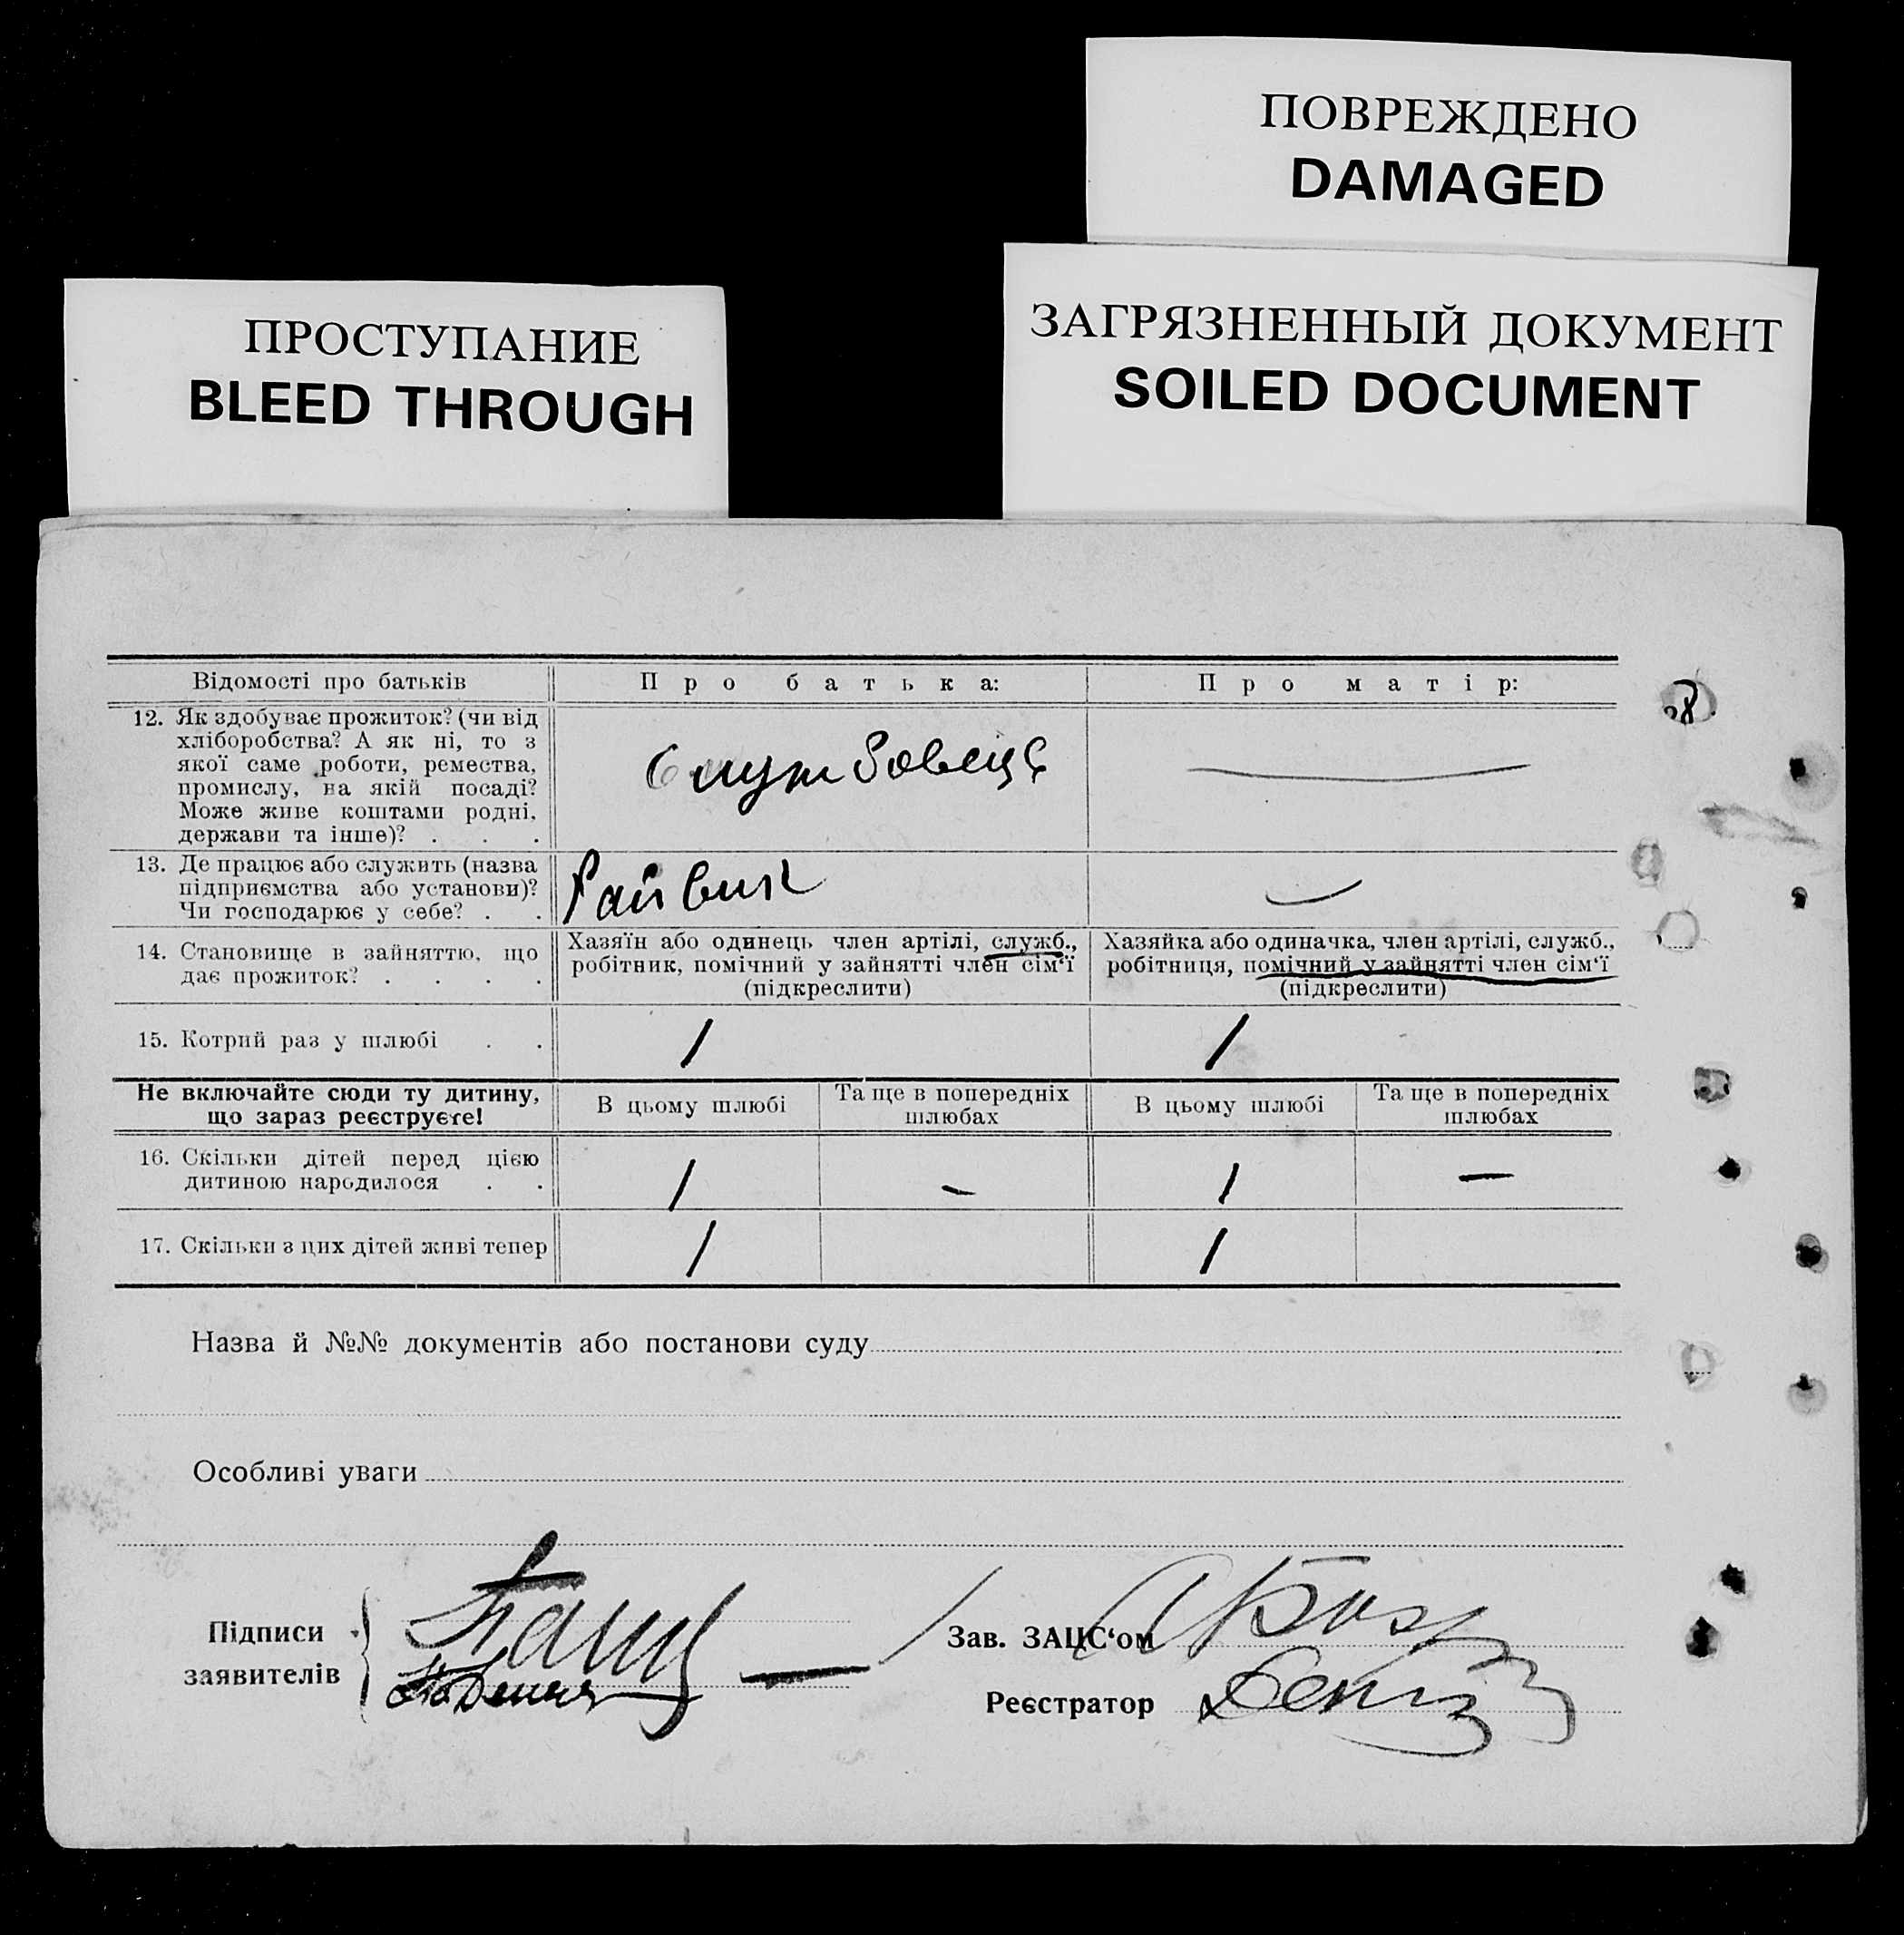 ПОВРЕЖДЕНО
DAMAGED
ПРОСТУПАНИЕ
BLEED THROUGH
ЗАГРЯЗНЕННЫЙ ДОКУМЕНТ
SOILED DOCUMENT
Відомості про батьків
Про батька:
Про матір:
12. Як здобуває прожиток? (чи від
хліборобства? А як ні, то з
якої саме роботи, ремества,
промислу, на якій посаді?
Може живе коштами родні,
держави та інше)? . . .
службовець
13. Де працює або служить (назва
підприємства або установи)?
Чи господарює у себе? . .
14. Становище в зайняттю, що
дає прожиток? . . . .
Хазяїн або одинець член артілі, служб.,
робітник, помічний у зайнятті член сім‘ї
(підкреслити)
Хазяйка або одиначка, член артілі, служб.,
робітниця, помічний у зайнятті член сім‘ї
(підкреслити)
15. Котрий раз у шлюбі . .
1
1
Не включайте сюди ту дитину,
що зараз реєструєте!
В цьому шлюбі
Та ще в попередніх
шлюбах
В цьому шлюбі
Та ще в попередніх
шлюбах
16. Скільки дітей перед цією
дитиною народилося . .
1
–
1
–
17. Скільки з цих дітей живі тепер
1
1
Назва й №№ документів або постанови суду
Особливі уваги
Підписи
заявителів
Зав. ЗАЦС‘ом
Реєстратор